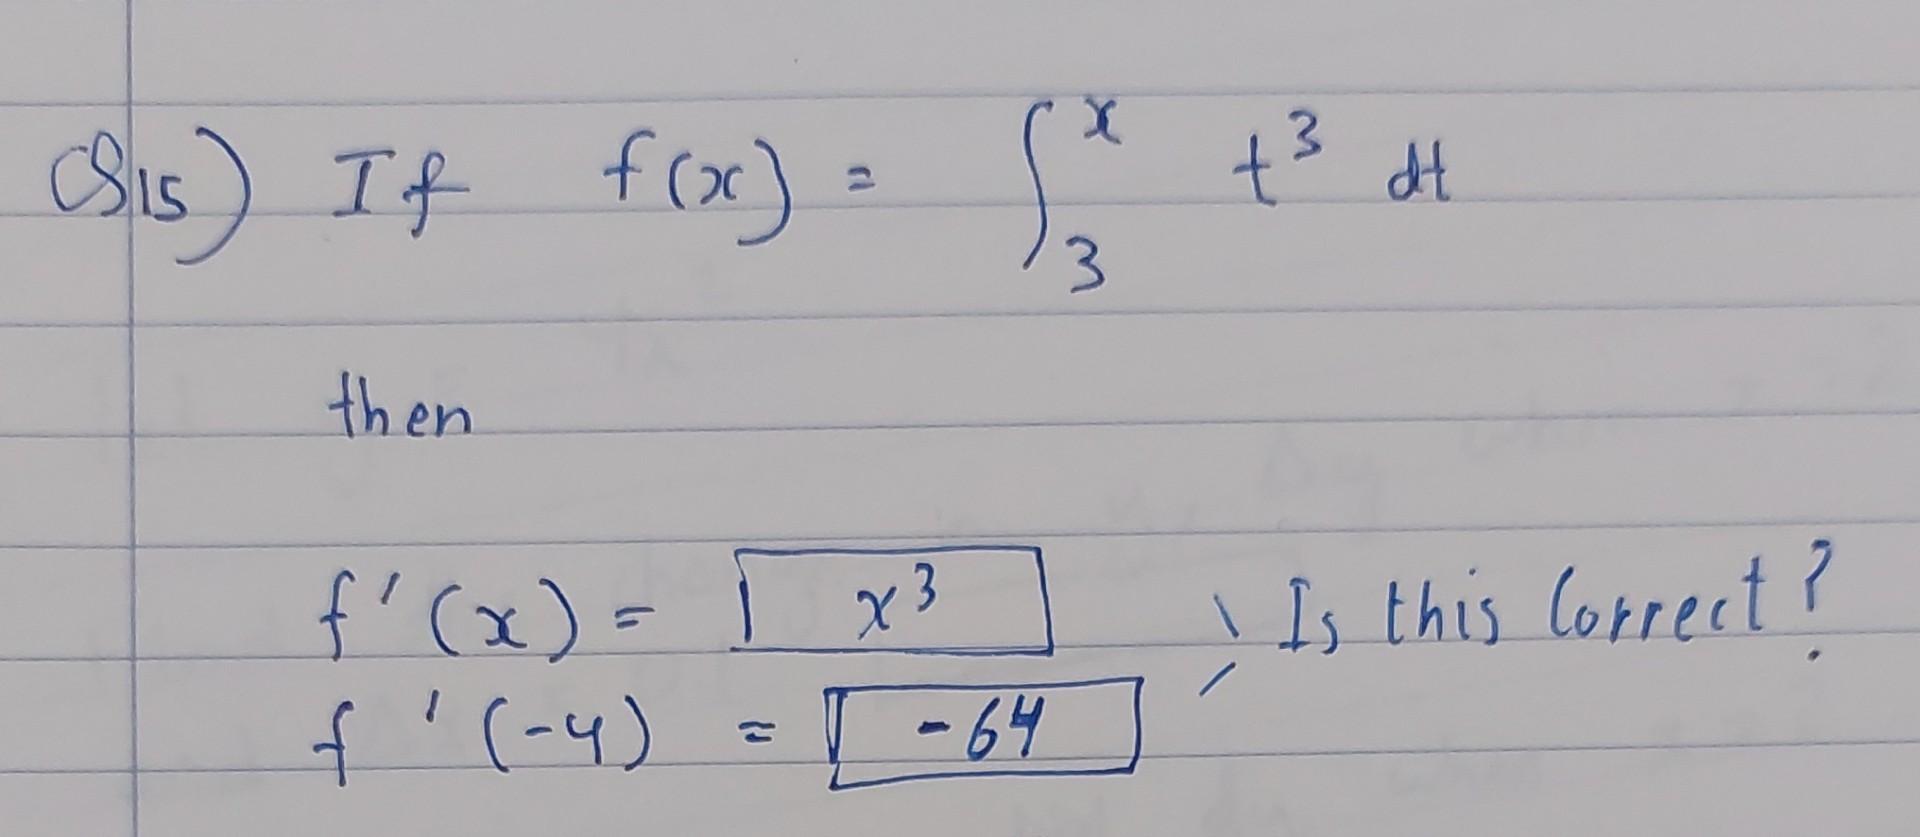 Q15) If f(x) = ∫₃ˣ t³ dt
then
f'(x) = x³
f'(-4) = -64
Is this Correct?